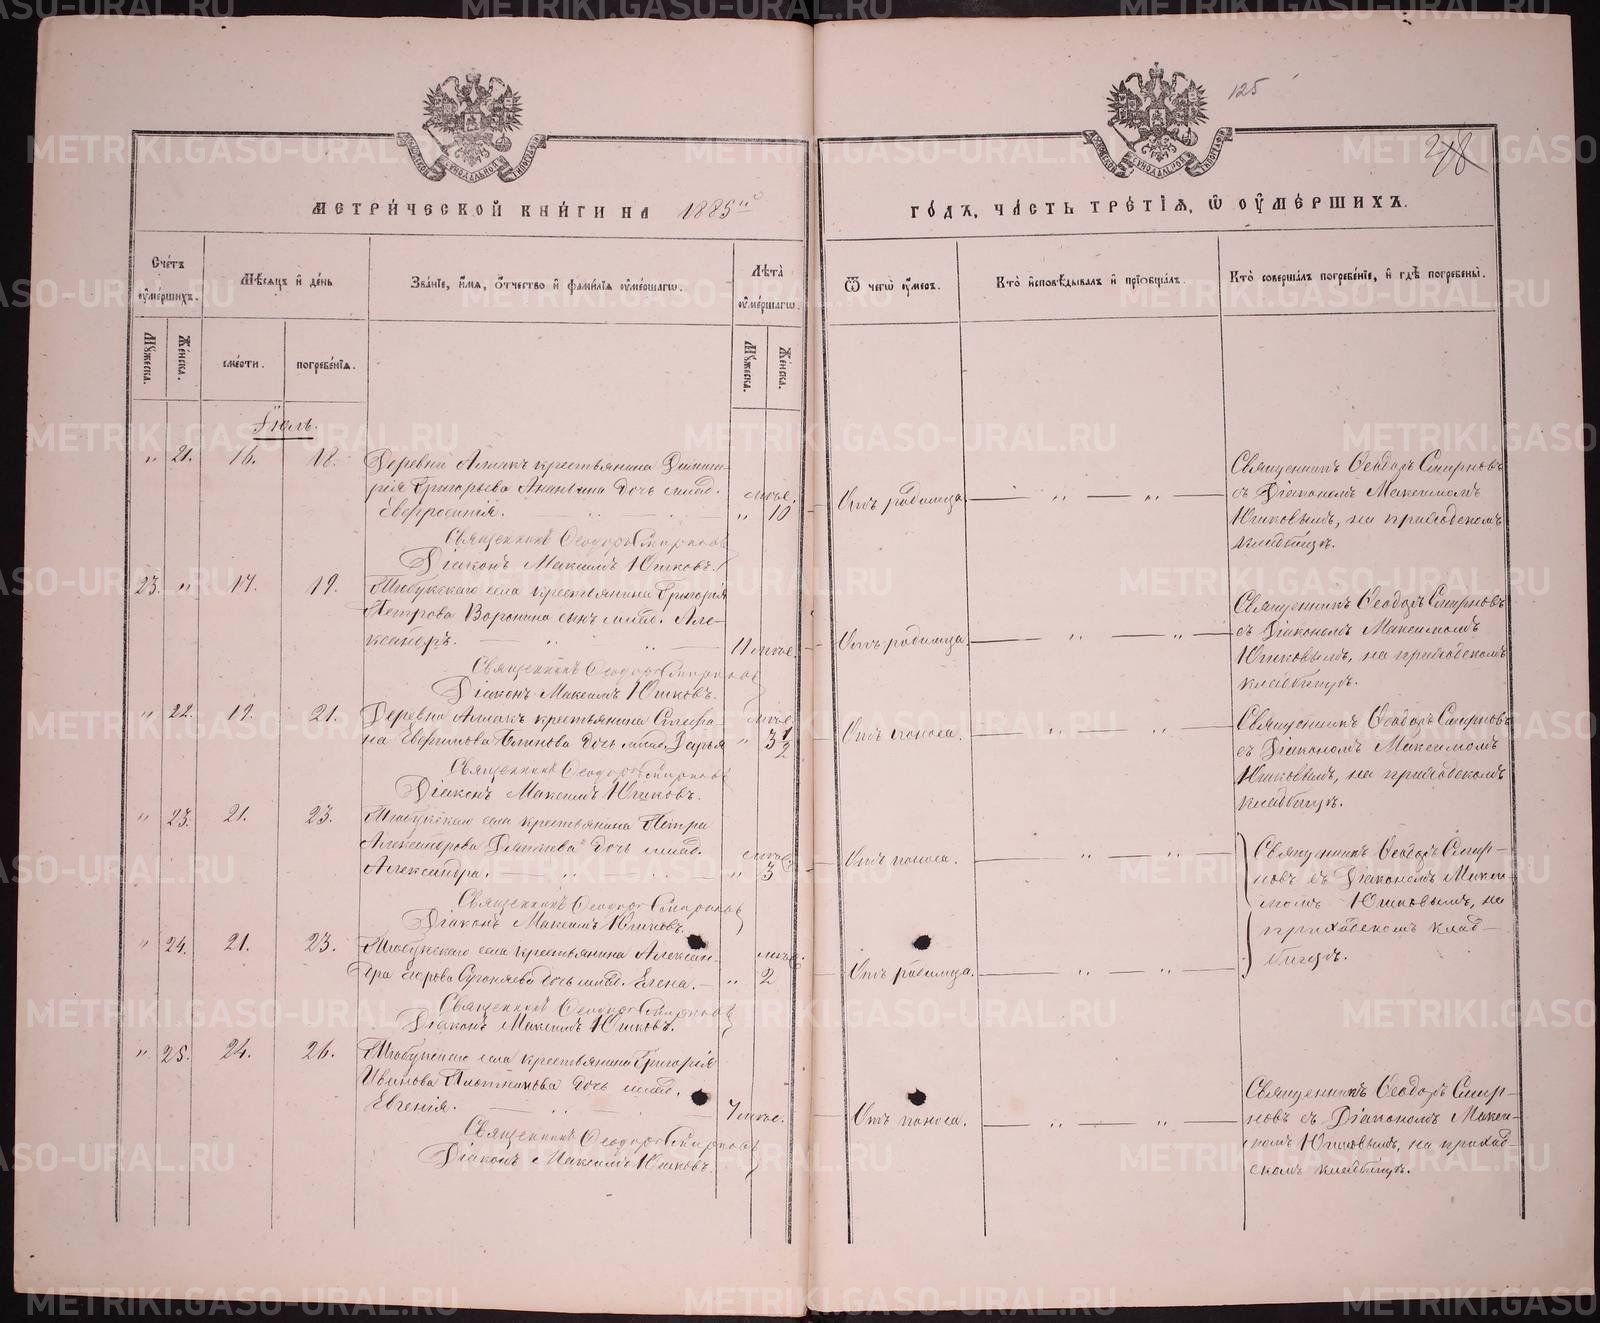 125
218
МЕТРИЧЕСКОЙ КНИГИ НА 1885й
ГОДЪ, ЧАСТЬ ТРЕТІЯ, Ѿ ОУМЕРШИХЪ.
Счетъ оумершихъ.
Мѣсяцъ и день
Званіе, имя, отчество и фамилія оумершагѡ.
Лѣта оумершагѡ.
Ѿ чегѡ оумеръ.
Кто исповѣдывалъ и пріобщалъ.
Кто совершалъ погребеніе, и гдѣ погребены.
Мужеска.
Женска.
смерти.
погребенія.
Мужеска.
Женска.
Іюль.
" 21. 16. 18. Деревни крестьянина Димит-
рія Григорьева Ананьина дочь млад.
Евфросинія. " 10 мѣс.
Отъ родимца
Священникъ Ѳеодоръ Смирновъ
съ Діакономъ Максимомъ
Юшковымъ, на приходскомъ
кладбищѣ.
Священникъ Ѳеодоръ Смирновъ
Діаконъ Максимъ Юшковъ.
23. " 17. 19. села крестьянина Григорія
Петрова Воронина сынъ млад. Але-
ксандръ. 11 мѣс.
Отъ родимца
Священникъ Ѳеодоръ Смирновъ
съ Діакономъ Максимомъ
Юшковымъ, на приходскомъ
кладбищѣ.
Священникъ Ѳеодоръ Смирновъ
Діаконъ Максимъ Юшковъ.
" 22. 19. 21. Деревни крестьянина Стефа-
на дочь млад. Дарья " 3 1/2 мѣс.
Отъ поноса.
Священникъ Ѳеодоръ Смирновъ
съ Діакономъ Максимомъ
Юшковымъ, на приходскомъ
кладбищѣ.
Священникъ Ѳеодоръ Смирновъ
Діаконъ Максимъ Юшковъ.
" 23. 21. 23. села крестьянина Петра
Александрова дочь млад.
Александра. " 3 мѣс.
Отъ поноса.
Священникъ Ѳеодоръ Смир-
новъ съ Діакономъ Макси-
момъ Юшковымъ, на
приходскомъ клад-
бищѣ.
Священникъ Ѳеодоръ Смирновъ
Діаконъ Максимъ Юшковъ.
" 24. 21. 23. села крестьянина Алексан-
дра дочь млад. Елена. " 2 мѣс.
Отъ родимца.
Священникъ Ѳеодоръ Смирновъ
Діаконъ Максимъ Юшковъ.
" 25. 24. 26. села крестьянина Григорія
Иванова Плотникова дочь млад.
Евгенія. 7 мѣс.
Отъ поноса.
Священникъ Ѳеодоръ Смир-
новъ съ Діакономъ Макси-
момъ Юшковымъ, на приход-
скомъ кладбищѣ.
Священникъ Ѳеодоръ Смирновъ
Діаконъ Максимъ Юшковъ.
METRIKI.GASO-URAL.RU